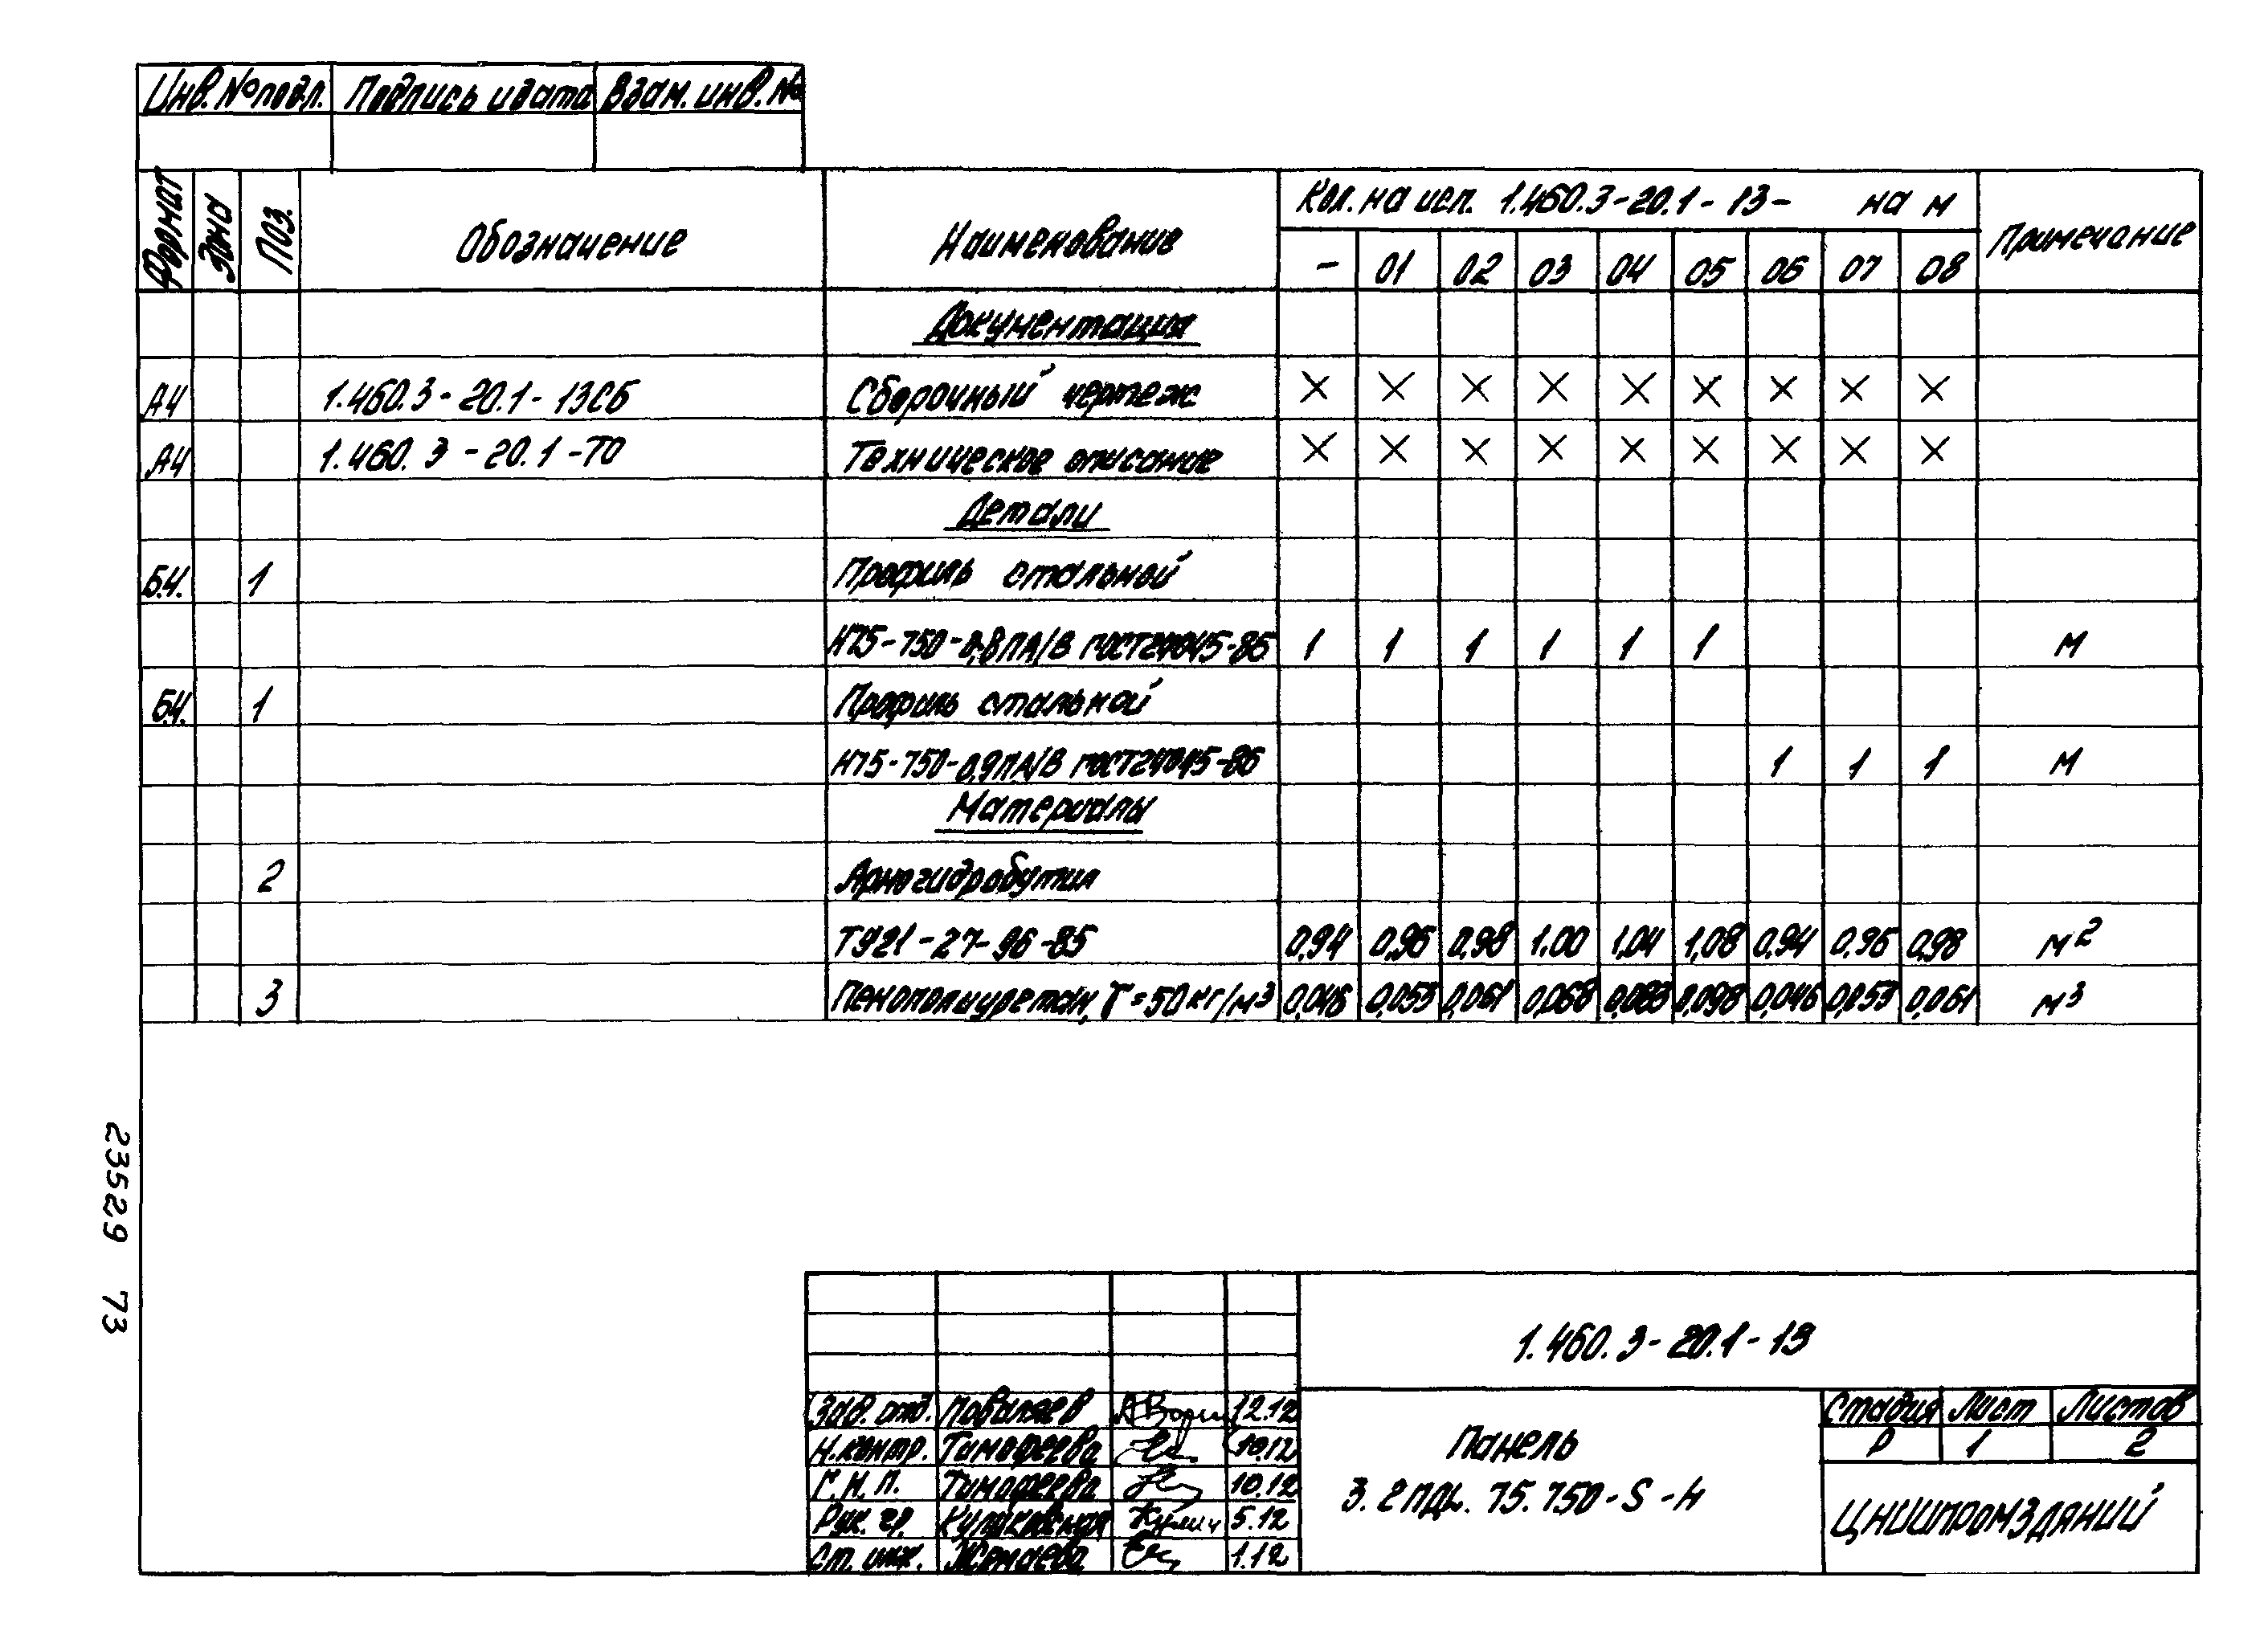 Инв. № подл. Подпись и дата Взам. инв. №
Формат Зона Поз. Обозначение Наименование Кол. на исп. 1.460.3-20.1-13- на м Примечание
- 01 02 03 04 05 06 07 08
Документация
А4 1.460.3-20.1-13СБ Сборочный чертеж × × × × × × × × ×
А4 1.460.3-20.1-ТО Техническое описание × × × × × × × × ×
Детали
Б.Ч. 1 Профиль стальной
Н75-750-0,8ПА/В ГОСТ24045-86 1 1 1 1 1 1 м
Б.Ч. 1 Профиль стальной
Н75-750-0,9ПА/В ГОСТ24045-86 1 1 1 м
Материалы
2 Армогидробутил
ТУ21-27-96-85 0,94 0,96 0,98 1,00 1,04 1,08 0,94 0,96 0,98 м²
3 Пенополиуретан, γ=50кг/м³ 0,046 0,053 0,061 0,068 0,083 0,098 0,046 0,053 0,061 м³
23529 73
1.460.3-20.1-13
Зав. отд. Поваляев 12.12
Н. контр. Тимофеева 10.12
Г.И.П. Тимофеева 10.12
Рук. гр. 5.12
Ст. инж. 1.12
Панель
Стадия Лист Листов
Р 1 2
ЦНИИПРОМЗДАНИЙ